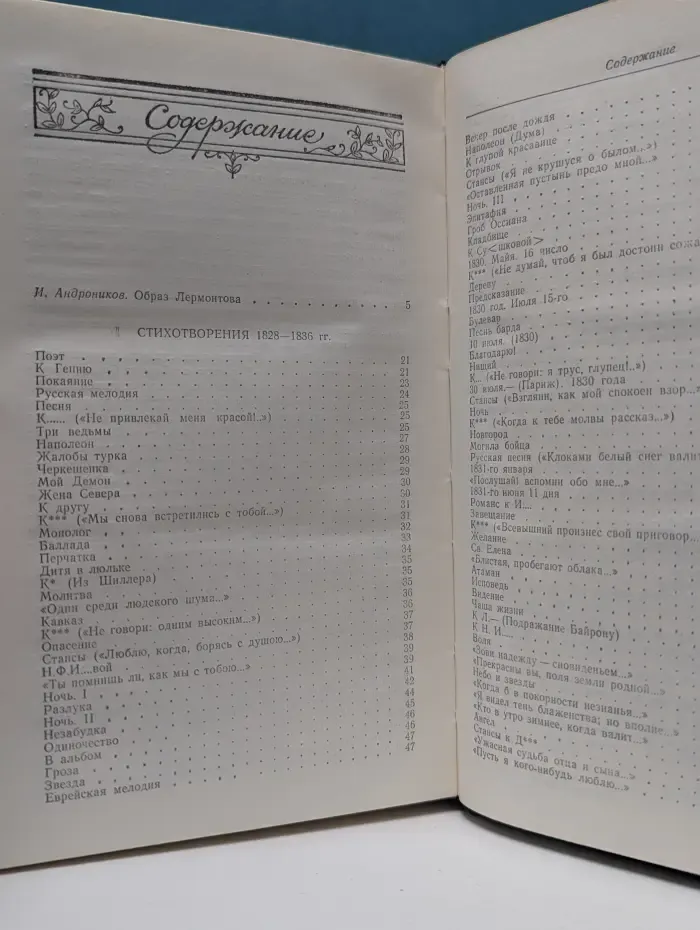 Содержание
И. Андроников. Образ Лермонтова . . . . . . . . . . 5
I СТИХОТВОРЕНИЯ 1828—1836 гг.
Поэт . . . . . . . . . . 21
К Гению . . . . . . . . . . 21
Покаяние . . . . . . . . . . 23
Русская мелодия . . . . . . . . . . 24
Песня . . . . . . . . . . 25
К...... («Не привлекай меня красой!..») . . . . . . . . . . 25
Три ведьмы . . . . . . . . . . 25
Наполеон . . . . . . . . . . 27
Жалобы турка . . . . . . . . . . 28
Черкешенка . . . . . . . . . . 29
Мой Демон . . . . . . . . . . 29
Жена Севера . . . . . . . . . . 30
К другу . . . . . . . . . . 30
К*** («Мы снова встретились с тобой...») . . . . . . . . . . 31
Монолог . . . . . . . . . . 31
Баллада . . . . . . . . . . 32
Перчатка . . . . . . . . . . 33
Дитя в люльке . . . . . . . . . . 34
К* (Из Шиллера) . . . . . . . . . . 35
Молитва . . . . . . . . . . 35
«Один среди людского шума...» . . . . . . . . . . 35
Кавказ . . . . . . . . . . 36
К*** («Не говори: одним высоким...») . . . . . . . . . . 36
Опасение . . . . . . . . . . 37
Стансы («Люблю, когда, борясь с душою...») . . . . . . . . . . 37
Н.Ф.И....вой . . . . . . . . . . 38
«Ты помнишь ли, как мы с тобою...» . . . . . . . . . . 39
Ночь. I . . . . . . . . . . 39
Разлука . . . . . . . . . . 41
Ночь. II . . . . . . . . . . 42
Незабудка . . . . . . . . . . 44
Одиночество . . . . . . . . . . 45
В альбом . . . . . . . . . . 46
Гроза . . . . . . . . . . 46
Звезда . . . . . . . . . . 47
Еврейская мелодия . . . . . . . . . . 47
Содержание
Вечер после дождя
Наполеон (Дума)
К глупой красавице
Отрывок
Стансы («Я не крушуся о былом...»)
«Оставленная пустынь предо мной...»
Ночь. III
Эпитафия
Гроб Оссиана
Кладбище
К Су<шковой>
1830. Майя. 16 число
К*** («Не думай, чтоб я был достоин сожа
Дереву
Предсказание
1830 год. Июля 15-го
Булевар
Песнь барда
10 июля. (1830)
Благодарю!
Нищий
К... («Не говори: я трус, глупец!..»)
30 июля.— (Париж). 1830 года
Стансы («Взгляни, как мой спокоен взор...»)
Ночь
К*** («Когда к тебе молвы рассказ...»)
Новгород
Могила бойца
Русская песня («Клоками белый снег валит
1831-го января
«Послушай! вспомни обо мне...»
1831-го июня 11 дня
Романс к И....
Завещание
К*** («Всевышний произнес свой приговор...
Желание
Св. Елена
«Блистая, пробегают облака...»
Атаман
Исповедь
Видение
Чаша жизни
К Л.— (Подражание Байрону)
К Н. И....
Воля
«Зови надежду — сновиденьем...»
«Прекрасны вы, поля земли родной...»
Небо и звезды
«Когда б в покорности незнанья...»
«Я видел тень блаженства; но вполне...»
«Кто в утро зимнее, когда валит...»
Ангел
Стансы к Д***
«Ужасная судьба отца и сына...»
«Пусть я кого-нибудь люблю...»